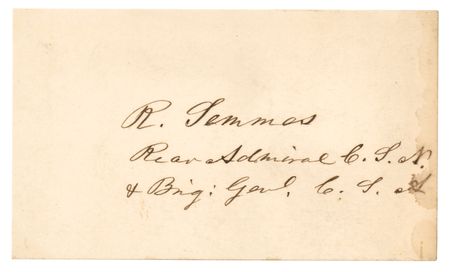 R. Semmes
Rear Admiral C. S. N.
& Brig: Genl. C. S. A